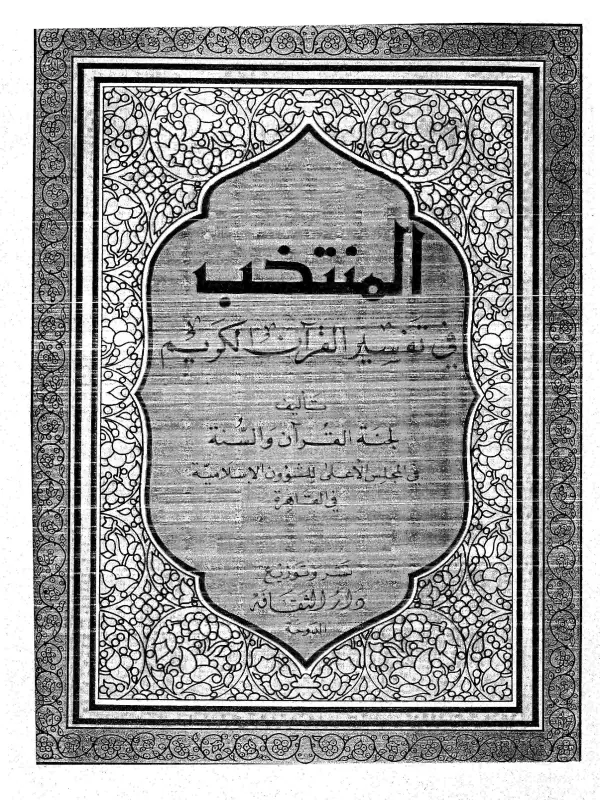 المنتخب
في تَفسِير القرآن الكَريم
تأليف
لجنة القُرآن وَالسُّنة
في المجلس الأعلى للشؤون الإسلامية
في القاهرة
نشر وتوزيع
دَار الثقافة
الدوحة